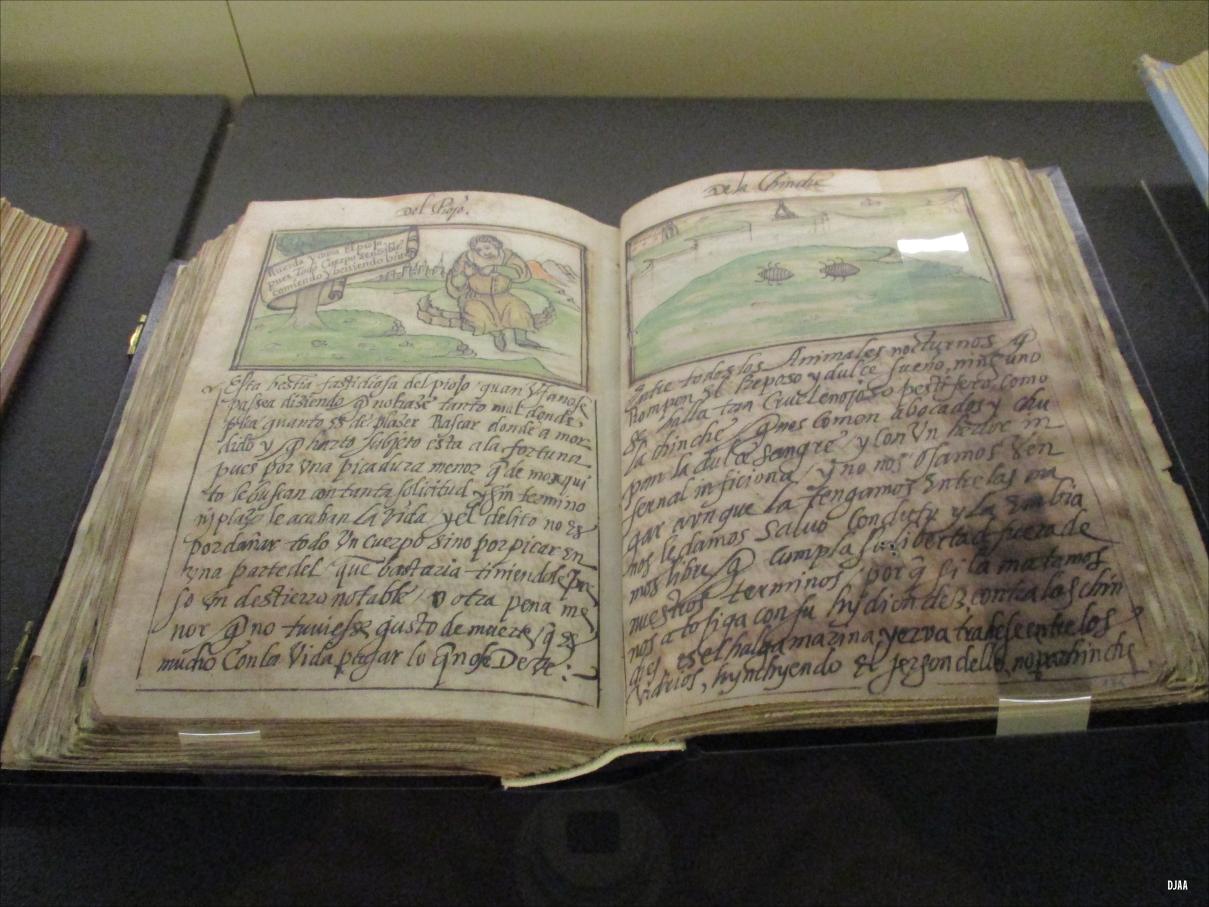 Del Piojo.
Muerda y coma el piojo
pues todo Cuerpo sensible
comiendo y bebiendo
Esta bestia fastidiosa del piojo quan Vfanose
passea diziendo q̃ no haze tanto mal donde
esta quanto es de plazer Rascar donde a mor
dido y q̃ harto subjeto esta a la fortuna
pues por vna picadura menor q̃ de mosqui
to le buscan con tanta solicitud y sin termino
ni plazo le acaban la vida y el delito no es
por dañar todo Vn cuerpo sino por picar en
vna parte del que bastaria tiniendole pre
so en destierro notable v otra pena me
nor q̃ no tuviesse gusto de muerte q̃ es
mucho Con la Vida pagar lo q̃ no se Deve:
De la Chinche
Entre todos los Animales nocturnos q̃
Rompen el Reposo y dulce sueño, ninguno
se halla tan Cruel enojoso pestifero, como
la chinche q̃ nos comen abocados y chu
pan la dulce sangre y con Vn hedor in
fernal inficiona y no nos osamos Ven
gar avnque la tengamos entre las ma
nos le damos salvo conduto y la embia
mos libre q̃ cumpla su libertad fuera de
nuestros terminos, porq̃ si la matamos
nos atosiga con su hydiondez, contra las chin
ches es el halga marina yerva trahese entre los
vidrios, hynchyendo el jergon della, no para chinche
DJAA